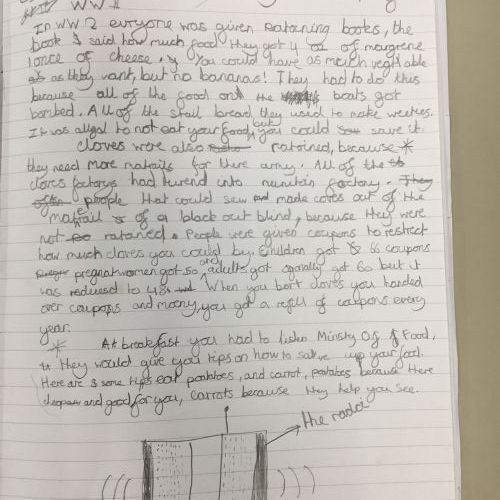 WW2
In WW2 evryone was given rationing books, the
book said how much food they got 4 oz of margrene
1 once of cheese. You could have as much vegtiable
as they want, but no bananas! They had to do this
because all of the good on the boats got
bombed. All of the stail bread they used to make weeties.
It was aligal to not eat your food, but you could save it.
cloves were also rationed, because *
they need more matrails for there army. All of the
cloves factorys had turend into munitan factory. They
often people that could sew and made coves out of the
matrail of a black out blind, because they were
not rationed. People were given coupons to restrect
how much cloves you could by. Children got 66 coupons
pregnat women got 50 and adults got oganally got 60 but it
was reduesed to 48. When you bort cloves you handed
over coupons and mony, you got a refill of coupons every
year.
* At breakfast you had to listen Minsity Of Food,
they would give you tips on how to save up your food.
Here are some tips eat potatoes, and carrot, potatoes because there
cheaper and good for you, carrots because they help you see.
the radoi